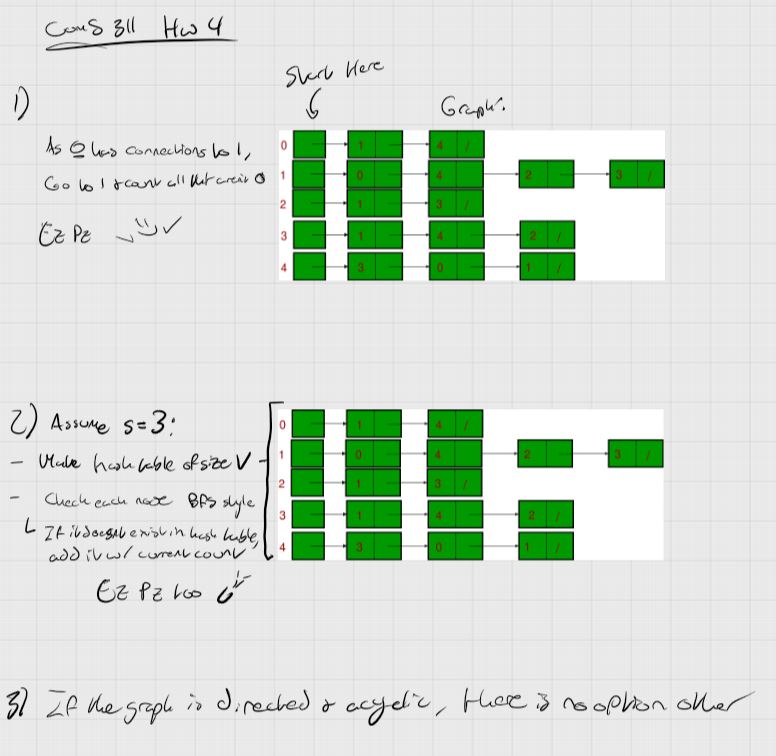 ComS 311 HW 4
Start Here
1)
Graph:
As 0 has connections to 1,
Go to 1 & count all that are in 0
EZ PZ
0 1 4 /
1 0 4 2 3 /
2 1 3 /
3 1 4 2 /
4 3 0 1 /
2) Assume s=3:
- Make hash table of size V
- Check each node BFS style
If it doesn't exist in hash table,
add it w/ current count
EZ PZ too
0 1 4 /
1 0 4 2 3 /
2 1 3 /
3 1 4 2 /
4 3 0 1 /
3) If the graph is directed & acyclic, there is no option other